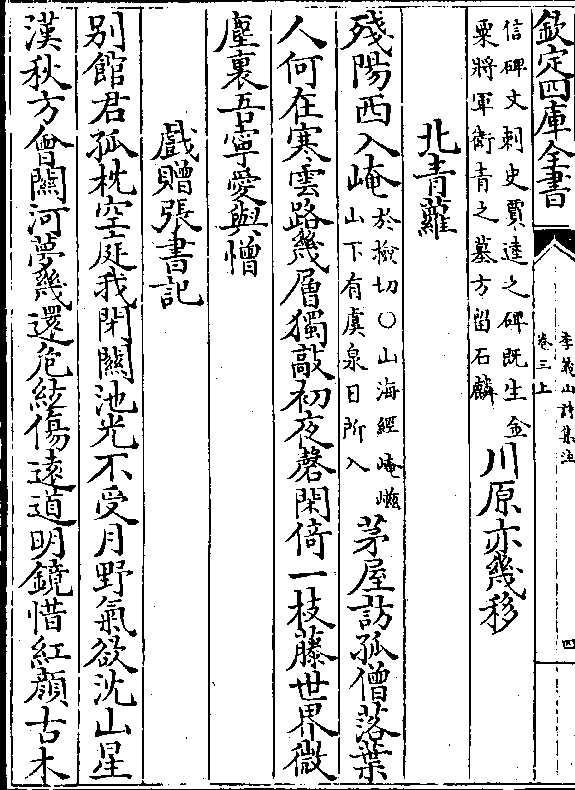 欽定四庫全書
李義山詩集注
卷三上
四
信碑文刺史賈逵之碑既生金
粟將軍衛青之墓方留石麟
川原亦幾移
北青蘿
殘陽西入崦
於撿切○山海經崦嵫
山下有虞泉日所入
茅屋訪孤僧落葉
人何在寒雲路幾層獨敲初夜磬閑倚一枝藤世界微
塵裏吾寧愛與憎
戲贈張書記
別館君孤枕空庭我閉關池光不受月野氣欲沈山星
漢秋方會關河夢幾還危絃傷遠道明鏡惜紅顔古木